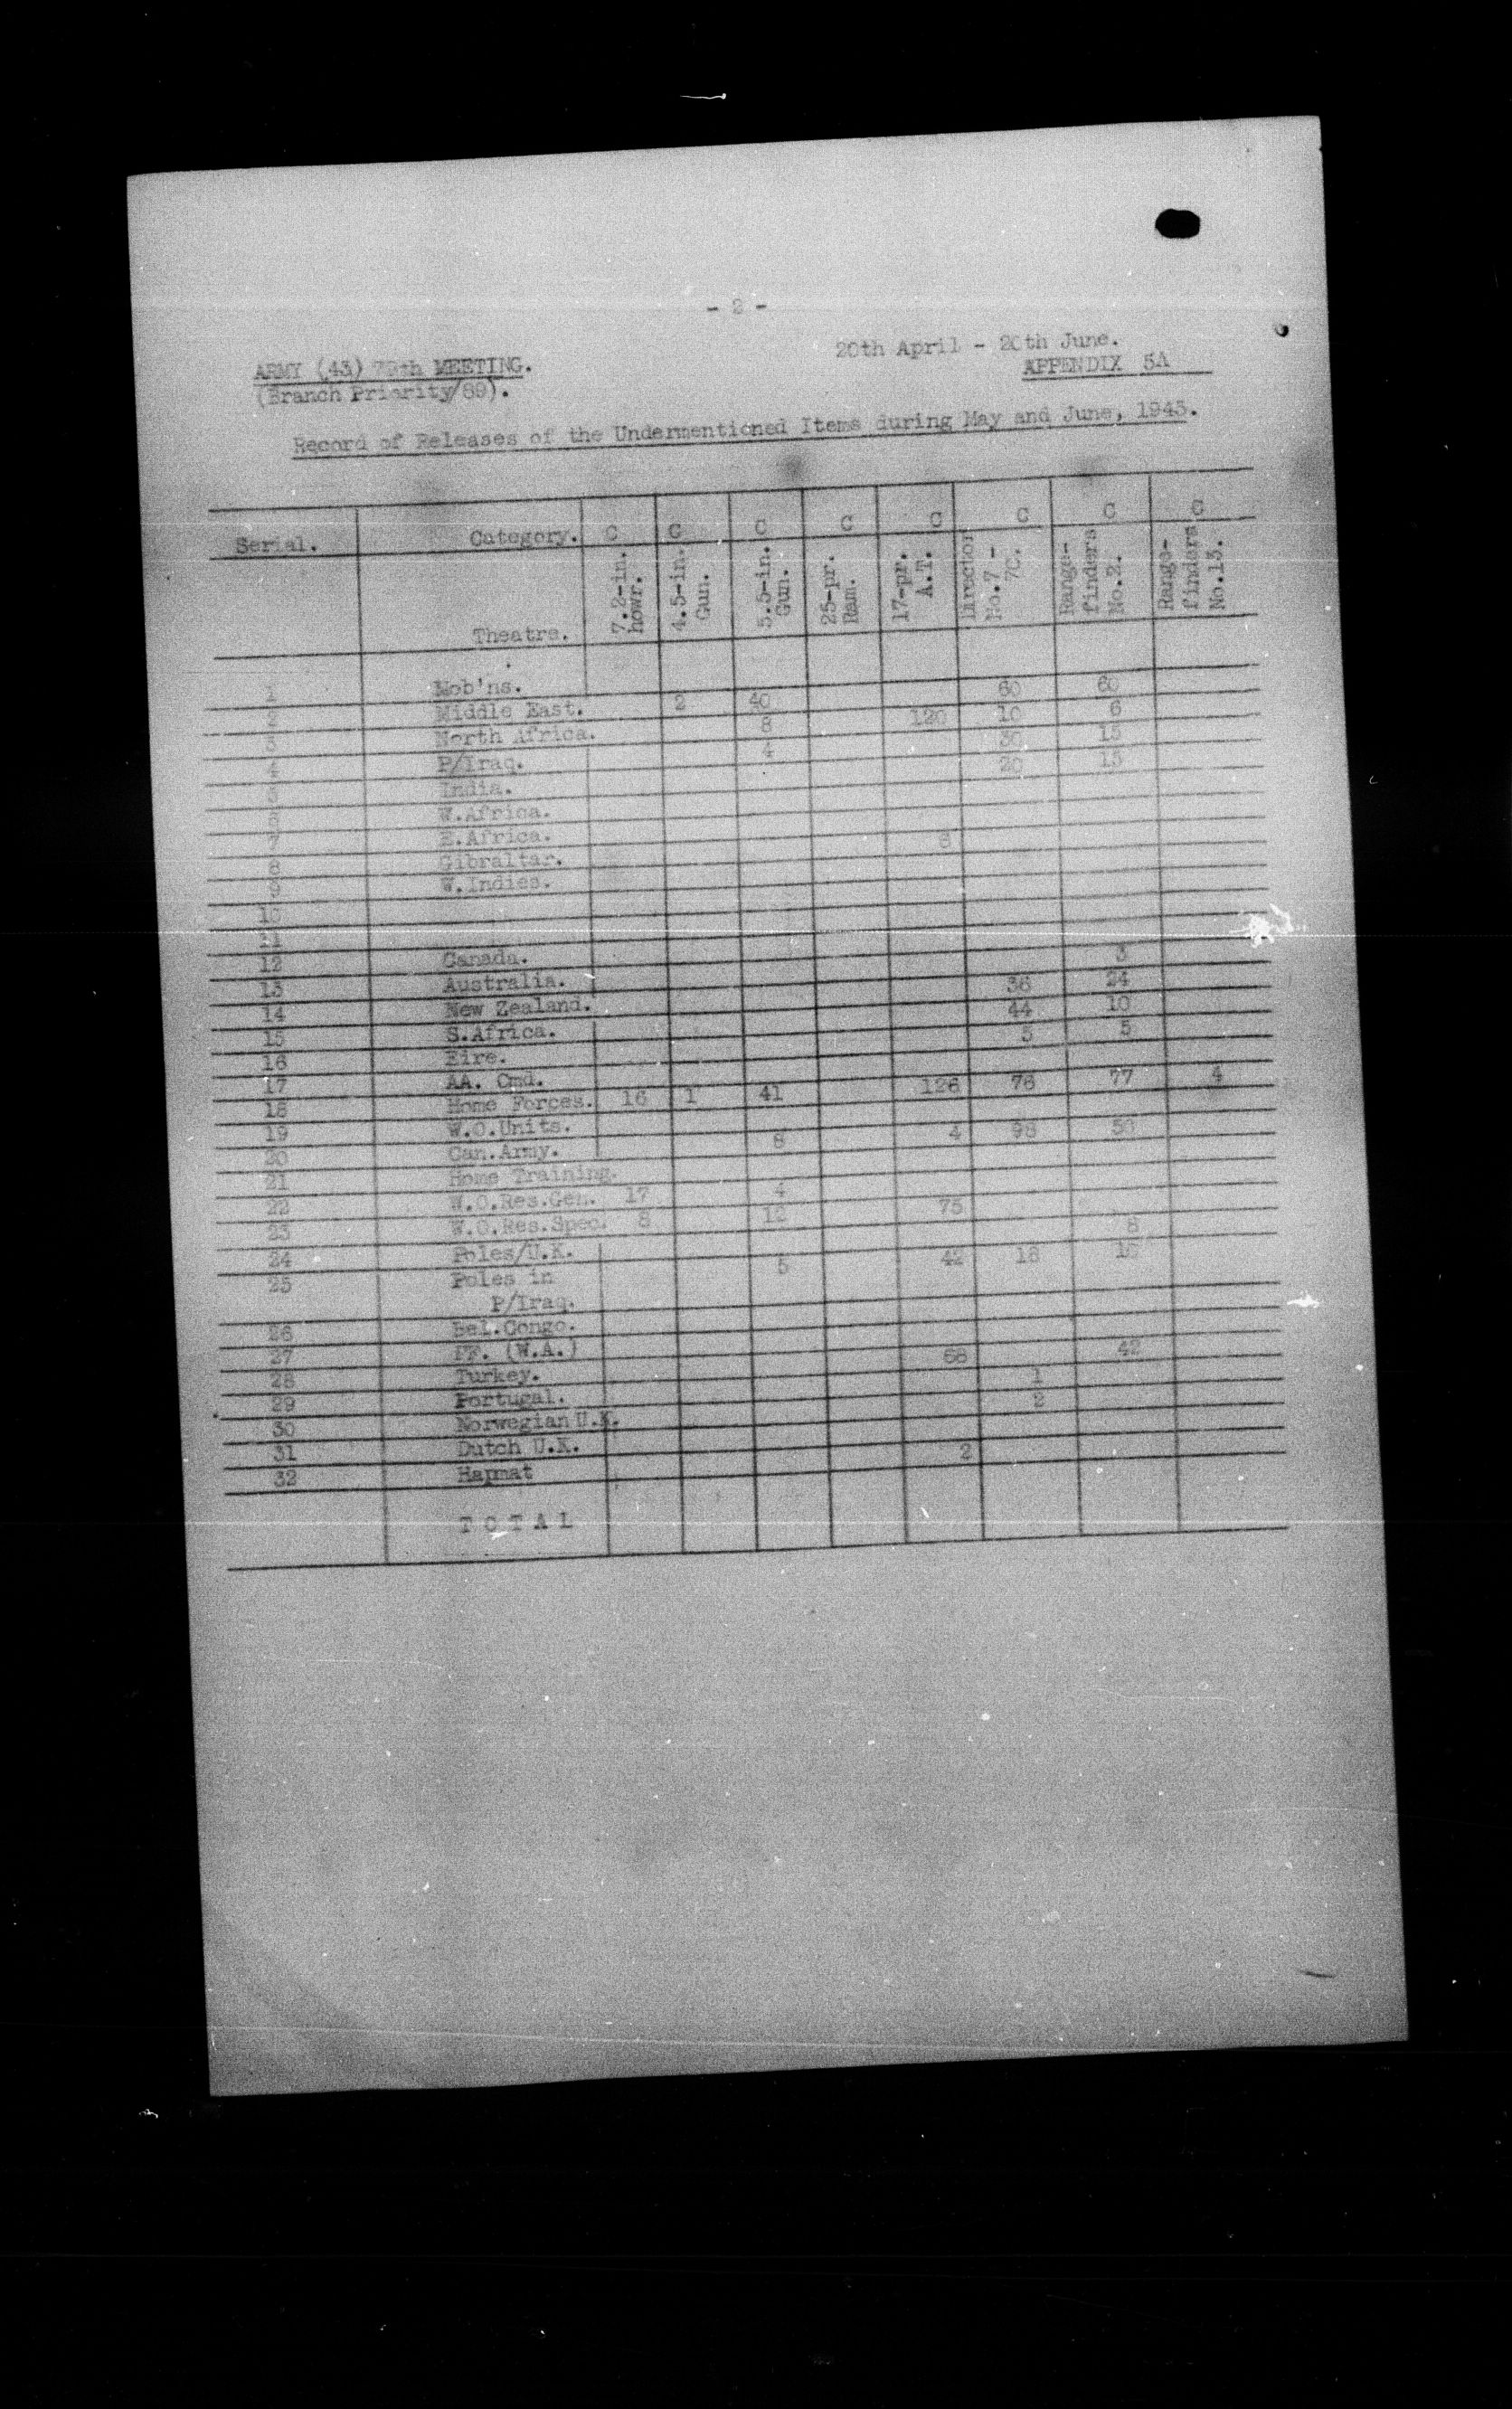 - 2 -
20th April - 20th June.
ARMY (43) 79th MEETING.
APPENDIX 5A
(Branch Priority/89).
Record of Releases of the Undermentioned Items during May and June, 1943.
Serial. Category. C C C C C C C C
Theatre. 7.2-in. howr. 4.5-in. Gun. 5.5-in. Gun. 25-pr. Ram. 17-pr. A.T. Director No.7 - 7C. Range-finders No.2. Range-finders No.13.
1 Mob'ns.
2 Middle East. 2 40 60 60
3 North Africa. 8 120 10 6
4 P/Iraq. 4 30 15
5 India. 20 15
6 W.Africa.
7 E.Africa.
8 Gibraltar. 8
9 W.Indies.
10
11
12 Canada.
13 Australia. 3
14 New Zealand. 36 24
15 S.Africa. 44 10
16 Eire. 5 5
17 AA. Cmd.
18 Home Forces. 16 1 41 126 76 77 4
19 W.O.Units.
20 Can.Army. 8 4 98 50
21 Home Training.
22 W.O.Res.Gen. 17 4
23 W.O.Res.Spec. 8 12 75
24 Poles/U.K. 8
25 Poles in 5 42 18 10
P/Iraq.
26 Bel.Congo.
27 FF. (W.A.)
28 Turkey. 68 42
29 Portugal. 1
30 Norwegian U.K. 2
31 Dutch U.K.
32 Hapmat 2
T O T A L